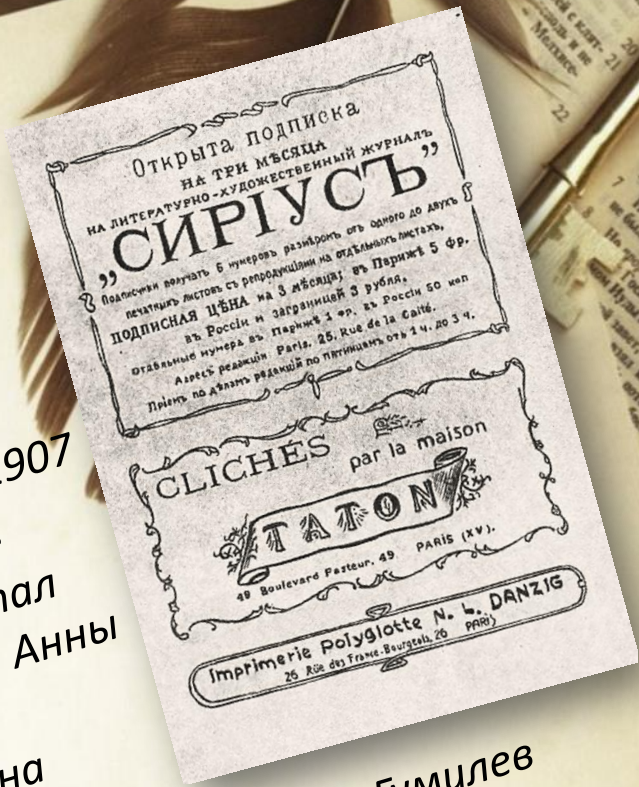 Открыта подписка
НА ТРИ МѢСЯЦА
НА ЛИТЕРАТУРНО-ХУДОЖЕСТВЕННЫЙ ЖУРНАЛЪ
„СИРIУСЪ”
Подписчики получатъ 6 нумеровъ размѣромъ отъ одного до двухъ
печатныхъ листовъ съ репродукцiями на отдѣльныхъ листахъ,
ПОДПИСНАЯ ЦѢНА на 3 мѣсяца; въ Парижѣ 5 фр.
въ Россiи и заграницей 3 рубля,
отдѣльные нумера въ Парижѣ 1 фр. въ Россiи 50 коп
Адресъ редакцiи Paris, 25, Rue de la Gaité.
Прiемъ по дѣламъ редакцiй по пятницамъ отъ 1 ч. до 3 ч.
CLICHÉS
par la maison
TATON
49 Boulevard Pasteur. 49 PARIS (XV).
Imprimerie Polyglotte N. L. DANZIG
26 Rüe des Francs-Bourgeois, 26 PARIS
1907
Анны
Гумилев
22
21
20
7
8